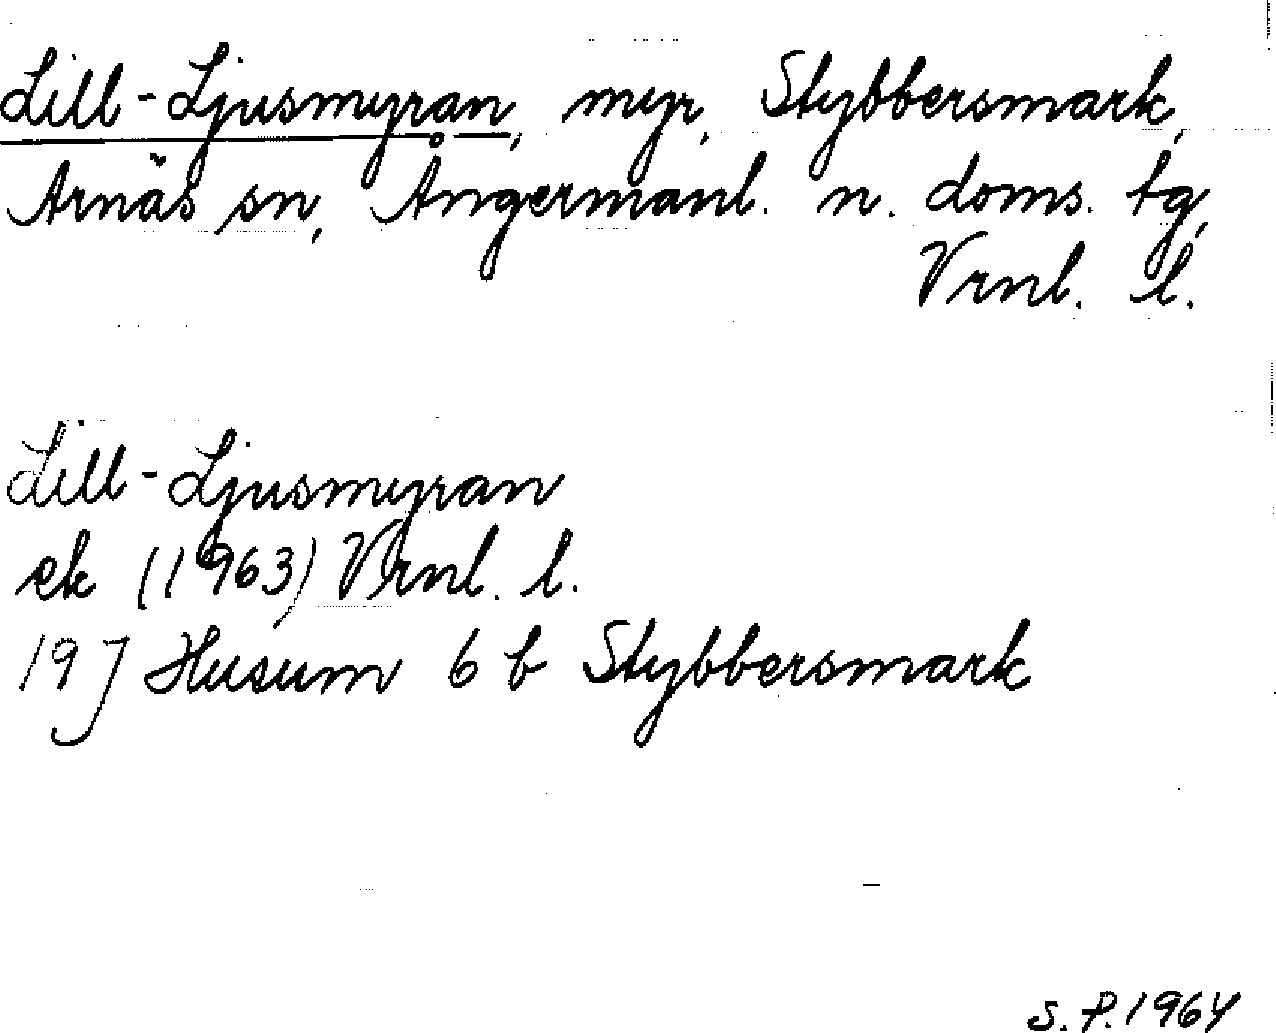 Lill-Ljusmyran, myr, Stybbersmark,
Arnäs sn, Ångermanl. n. doms. tg,
Vrnl. l.
Lill-Ljusmyran
ek (1963) Vrnl. l.
19 J Husum 6 b Stybbersmark
S.P. 1964